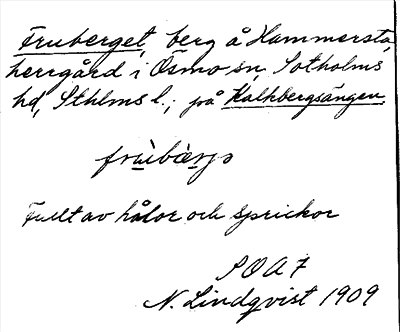 Fruberget, berg å Hammersta
herrgård i Ösmo sn, Sotholms
hd, Sthlms l.; på Kalkbergsängen.
frùbæ̀rjə
Fullt av hålor och sprickor
SOA 7
N. Lindqvist 1909